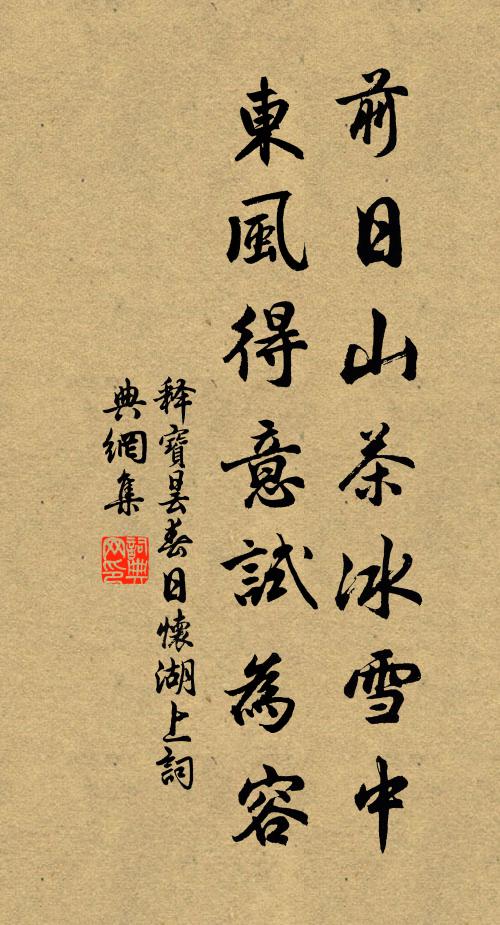 前日山茶冰雪中
東風得意試為容
釋寶曇春日懷湖上詞
典網集
詞典網印